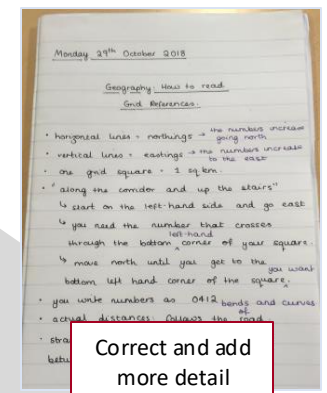 Monday 29th October 2018
Geography: How to read
Grid References.
• horizontal lines = northings → the numbers increase going north
• vertical lines = eastings → the numbers increase to the east
• one grid square = 1 sq km.
• "along the corridor and up the stairs"
↳ start on the left-hand side and go east
↳ you need the number that crosses
through the bottom left-hand corner of your square.
↳ move north until you get to the
bottom left hand corner of the square you want.
• you write numbers as 0412
• actual distances: follows the bends and curves of road
Correct and add
more detail